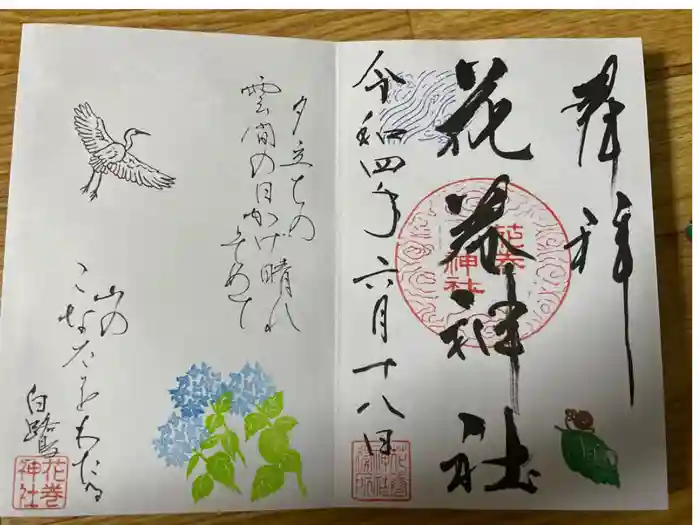 奉拝
花巻神社
令和四年六月十八日
花巻
神社
花巻
神社
夕立の
雲間の日かげ晴れ
そめて
山の
こなたをわたる
白鷺
花巻
神社